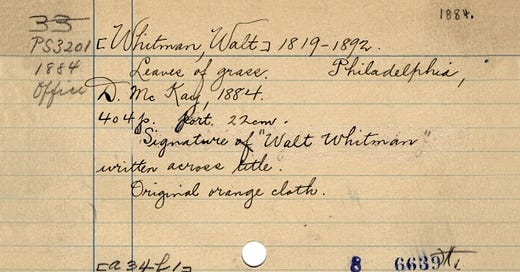 1884.
33
PS3201
1884
Office
[Whitman, Walt] 1819-1892.
Leaves of grass. Philadelphia,
D. McKay, 1884.
404 p. port. 22cm.
Signature of "Walt Whitman"
written across title.
Original orange cloth.
[a34f1]
8 6639